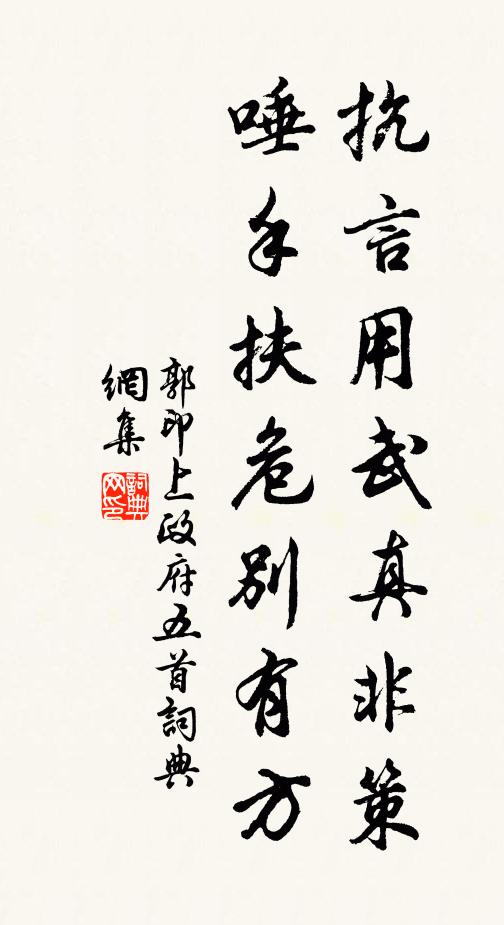 抗言用武真非策
唾手扶危別有方
郭印上政府五首詞典
網集
詞典網印